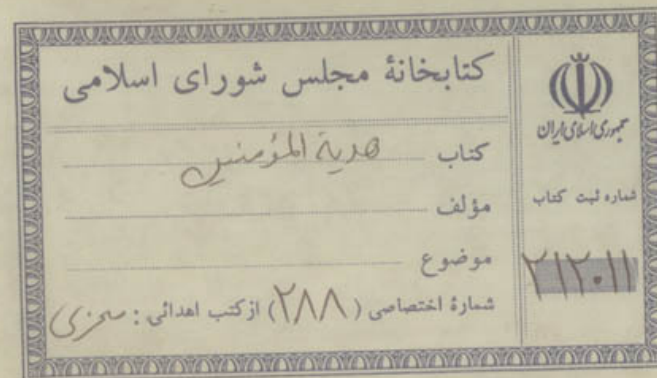 کتابخانهٔ مجلس شورای اسلامی
کتاب هدیة المؤمنین
مؤلف
موضوع
شمارهٔ اختصاصی (۲۸۸) از کتب اهدائی :
جمهوری اسلامی ایران
شماره ثبت کتاب
۲۱۲۰۱۱